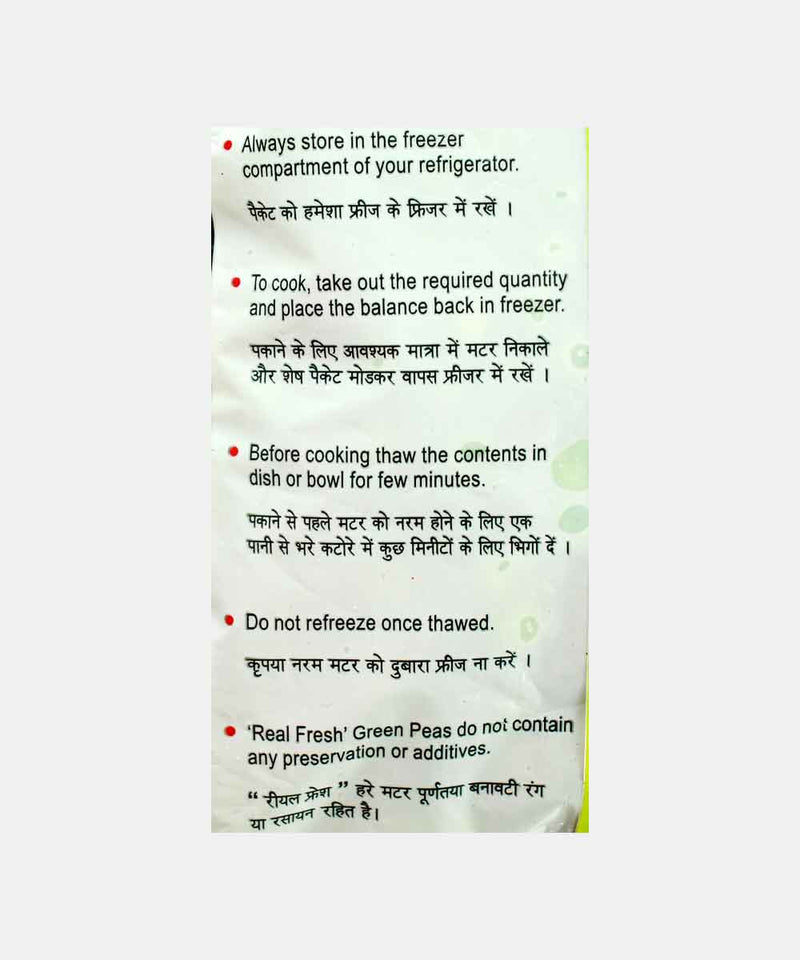 • Always store in the freezer
compartment of your refrigerator.
पैकेट को हमेशा फ्रीज के फ्रिजर में रखें ।
• To cook, take out the required quantity
and place the balance back in freezer.
पकाने के लिए आवश्यक मात्रा में मटर निकाले
और शेष पैकेट मोडकर वापस फ्रीजर में रखें ।
• Before cooking thaw the contents in
dish or bowl for few minutes.
पकाने से पहले मटर को नरम होने के लिए एक
पानी से भरे कटोरे में कुछ मिनीटों के लिए भिगों दें ।
• Do not refreeze once thawed.
कृपया नरम मटर को दुबारा फ्रीज ना करें ।
• ‘Real Fresh’ Green Peas do not contain
any preservation or additives.
“ रीयल फ्रेश ” हरे मटर पूर्णतया बनावटी रंग
या रसायन रहित है।